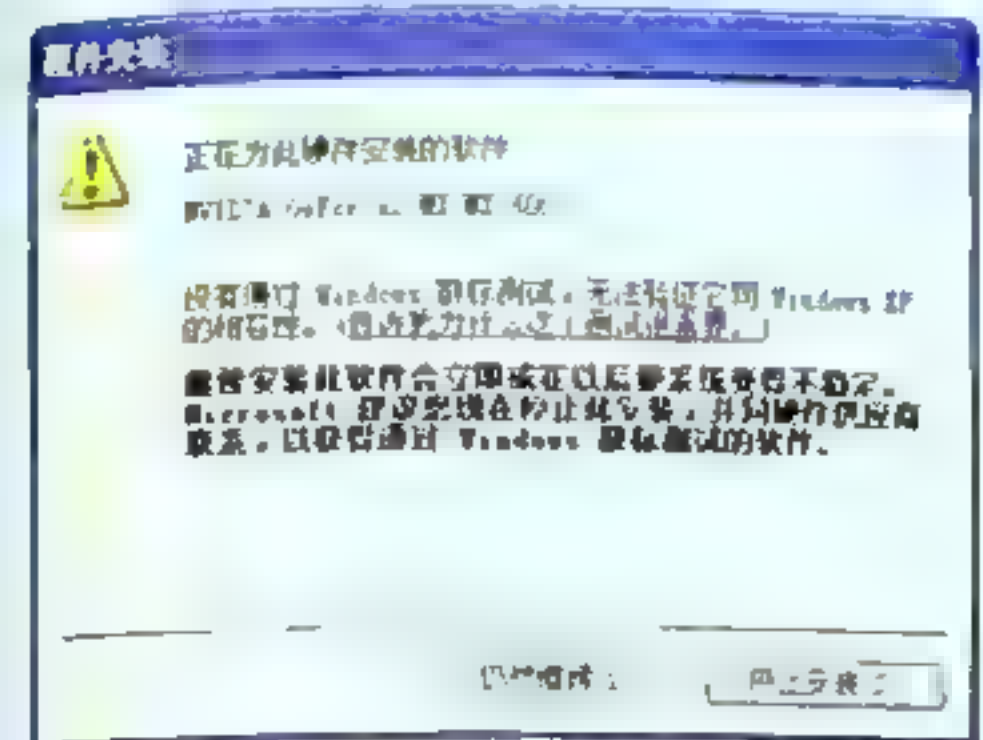 硬件安装
正在为此硬件安装的软件
没有通过 Windows 徽标测试，无法验证它同 Windows XP
的相容性。（告诉我为什么这个测试很重要。）
继续安装此软件会立即或在以后使系统变得不稳定。
Microsoft 建议您现在停止此安装，并同硬件供应商
联系，以获得通过 Windows 徽标测试的软件。
仍然继续
停止安装